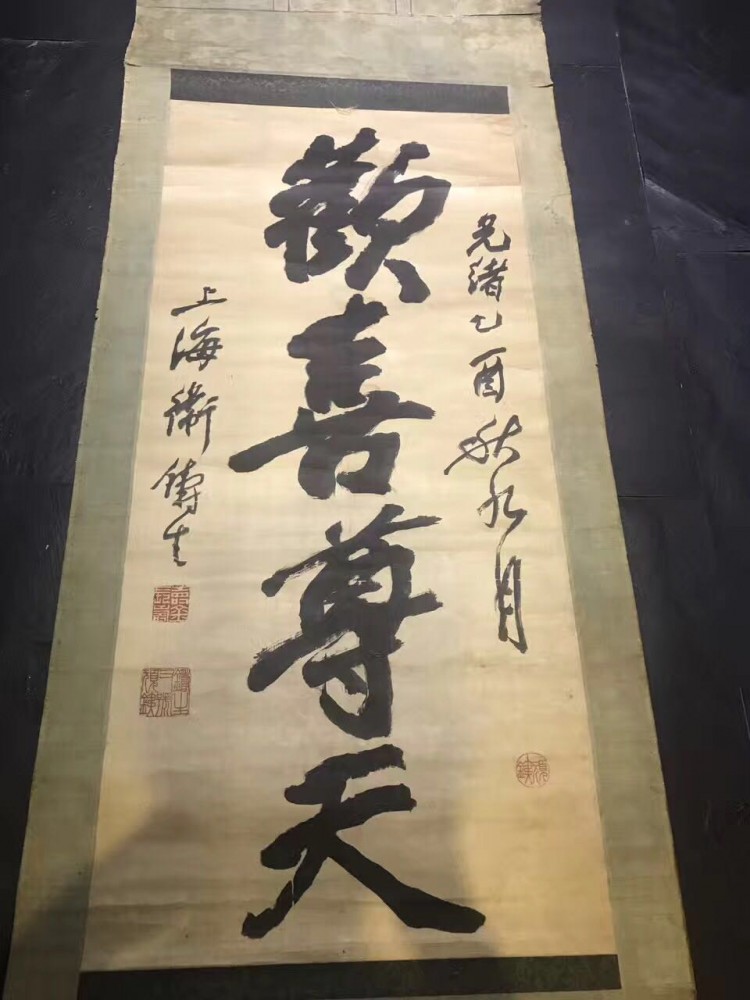 歡喜尊天
光緒乙酉秋九月
上海衛鑄生